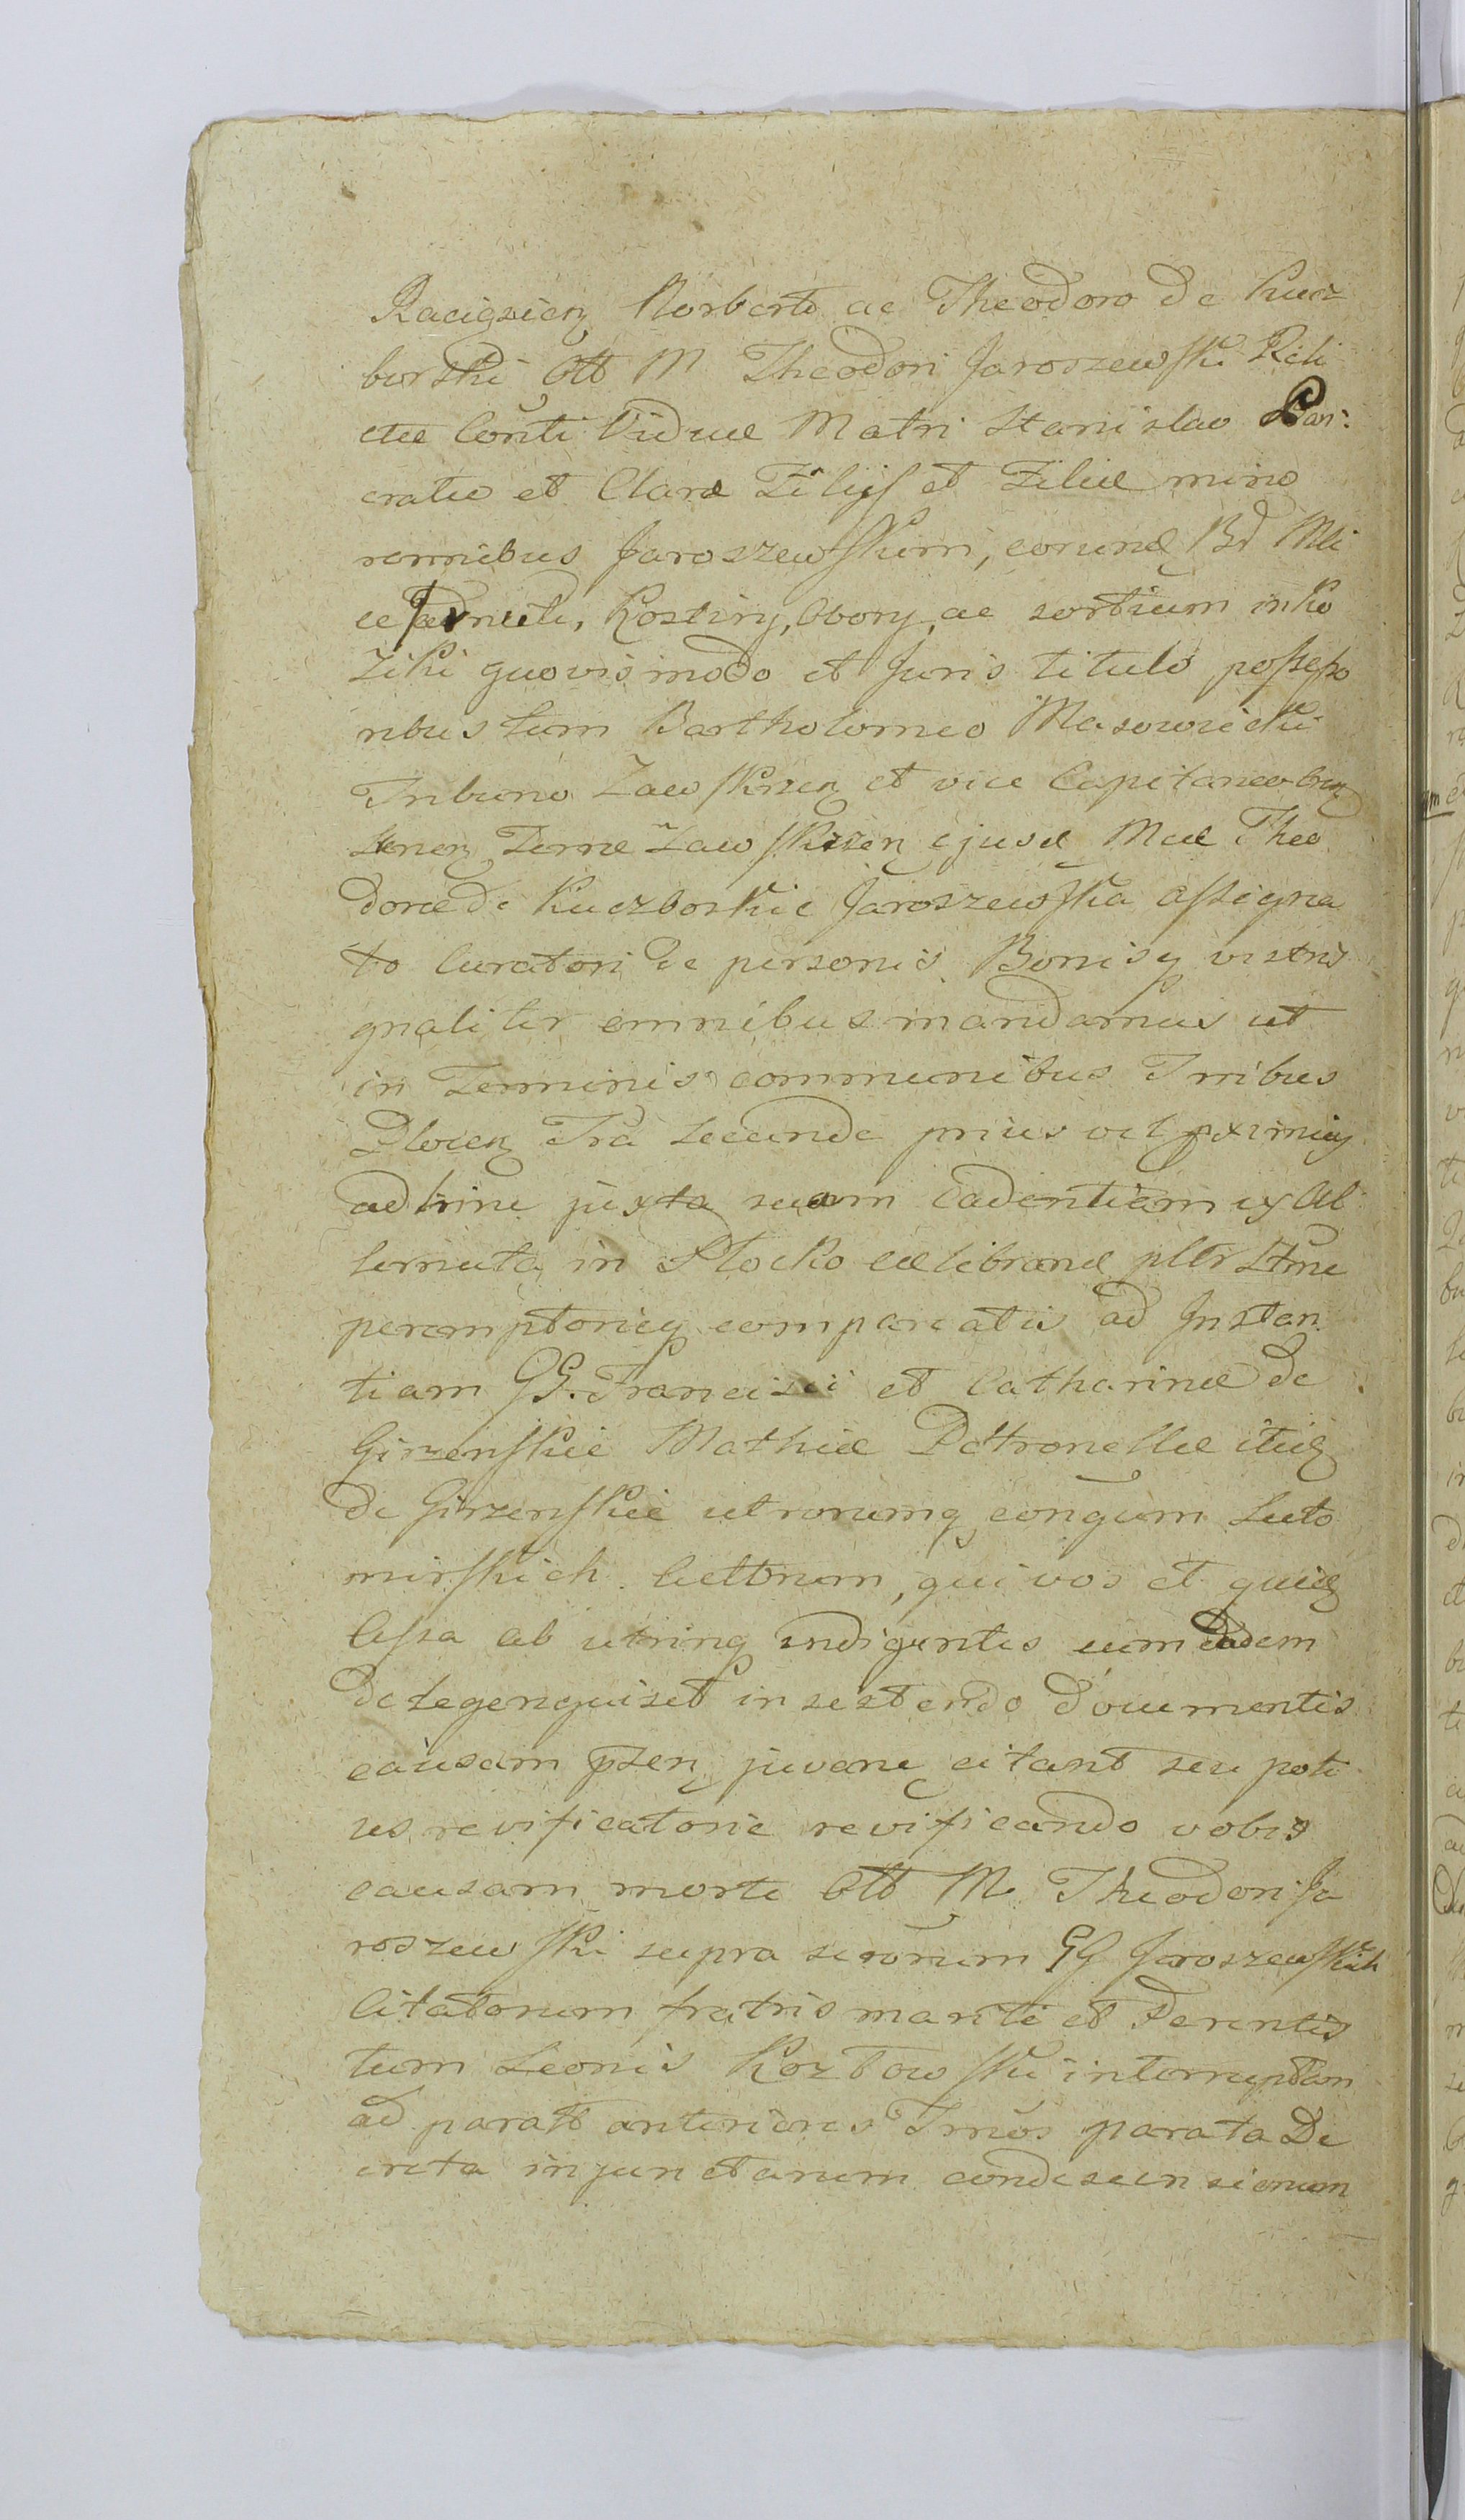 Raciązień Norberto ac Theodoro de Kucz
borskie Ott M Theodori Jaroszewski Reli
ctæ Conti Viduæ Matri Stanislao Pan:
cratio et Claræ Filijs et Filiæ mino
rennibus Jaroszewskim, eorund Bd Mli
Kostiry, Obory, ac sortium in Ko
ziki quovis modo et Juris titulo possesso
ribus tum Bartholomeo Masowiecki
Tribuno Zawskrzen et vice Capitaneo
Terræ Zawskrzen ejusd Mæ Theo
doræ de Kuczborskie Jaroszewska assigna
to Curatori de personis Bonisq vestris
gnaliter omnibus mandamus ut
in Terminis communibus Trribus
Plocen Tra secunda prius vel pximiq
adhinc juxta suam Cadentiam ex Al
ternata in Plocko celebrand pltr
peremptorieq compareatis ad Instan
tiam GG. Francisci et Catharinæ de
Girzenskie Mathiæ Petronellæ itid
de Girzenskie utrorumq congum Luto
mirskich Acttorum, qui vos et quid
Cassa ab utrinq indigentes eum eadem
insestendo documentis
causam psen juvane citant seu poti
us revificatorie revificando vobis
causam morte Ott M Theodori Ja
roszewski supra suorum GG Jaroszewskich
Citatorum fratris mariti et Parentis
tum Leonis Kozłowski interruptam
ad parata anteriores Trmos parata De
creta injunctarum condescensionum